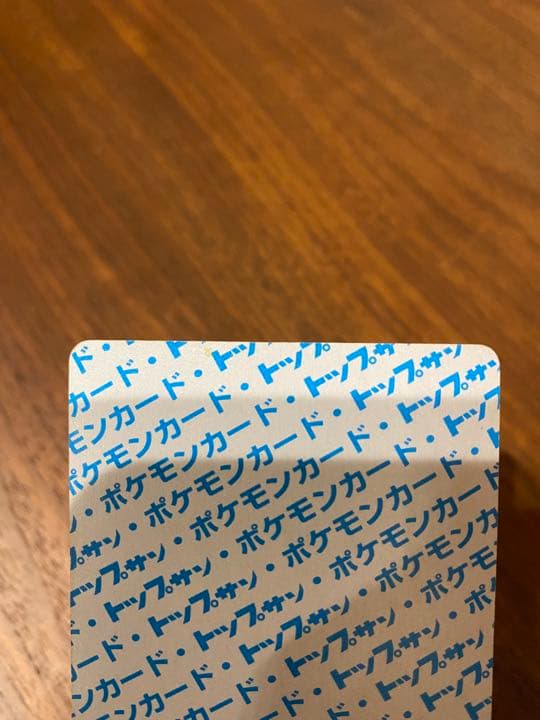 ド・
カード・ト
モンカード・トップ
ポケモンカード・トップサン
・ポケモンカード・トップサン
サン・ポケモンカード・トップサン
トップサン・ポケモンカード・トップ
・トップサン・ポケモンカード・
ード・トップサン・ポケモンカード
ンカード・トップサン・ポケモン
カード・トップサン・ポ
トップサン